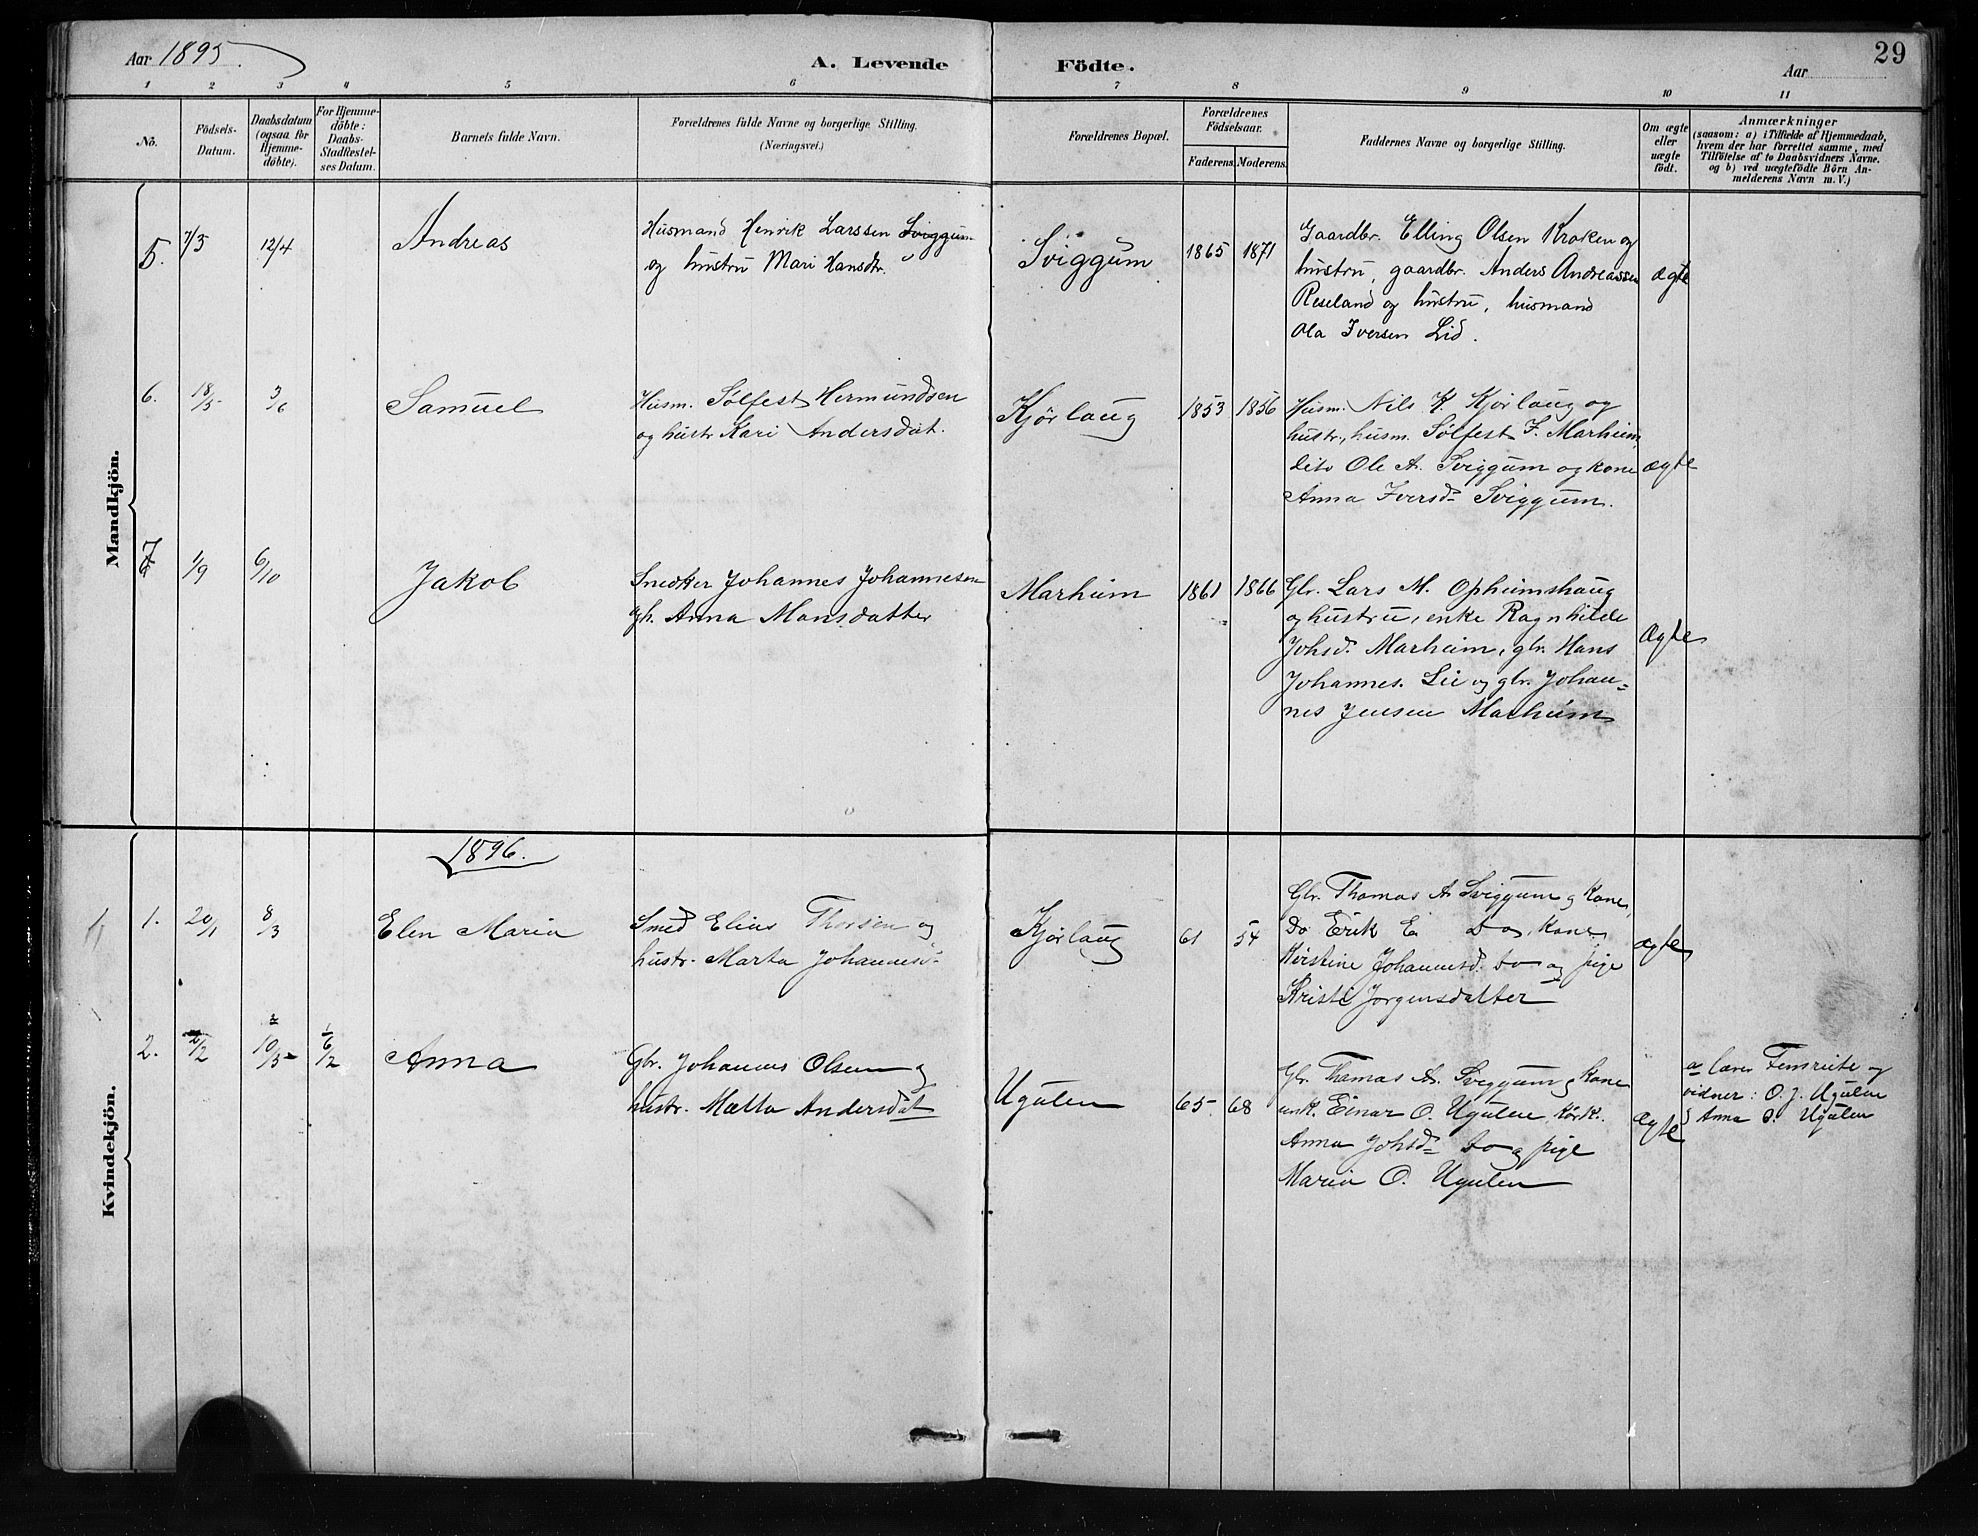 Aar 1895.
A. Levende Födte.
Aar
29
1 2 3 4 5 6 7 8 9 10 11
No.
Födsels-Datum.
Daabsdatum (ogsaa for Hjemme-döbte).
For Hjemme-döbte: Daabs-Stadfæstel-ses Datum.
Barnets fulde Navn.
Forældrenes fulde Navne og borgerlige Stilling.
(Næringsvei.)
Forældrenes Bopæl.
Forældrenes Födselsaar.
Faderens. Moderens.
Faddernes Navne og borgerlige Stilling.
Om ægte eller uægte födt.
Anmærkninger
(saasom: a) i Tilfælde af Hjemmedaab, hvem der har forrettet samme, med Tilföielse af to Daabsvidners Navne. og b) ved uægtefödte Börn An-melderens Navn m. V.)
Mandkjön.
5. 7/3 12/4 Andreas
Husmand Henrik Larssen Sviggum
og hustru Mari Hansdtr.
Sviggum 1865 1871
Gaardbr. Elling Olsen Kroken og
hustru, gaardbr. Anders Andreassen
Reseland og hustru, husmand
Ola Iversen Lid.
ægte
6. 18/5 3/6 Samuel
Husm. Sølfest Hermundsen
og hustr. Kari Andersdat.
Kjørlaug 1853 1856
Husm. Nils K. Kjørlaug og
hustr., husm. Sølfest F. Marheim,
dito Ole A. Sviggum og kone
Anna Iversd. Sviggum.
ægte
7 1/9 6/10 Jakob
Snedker Johannes Johannesen
gh. Anna Monsdatter
Marheim 1861 1866
Gbr. Lars M. Opheimshaug
og hustru, enke Ragnhilde
Johsd. Marheim, gbr. Hans
Johannes. Lie og gbr. Johan=
nes Jensen Marheim
ægte
Kvindekjön.
1896.
1. 20/1 8/3 Elen Maria
Smed Elias Thorsen og
hustr. Marta Johannesd.
Kjørlaug 61 54
Gbr. Thomas A. Sviggum og kone,
do Erik E. Do og kone,
Kirstine Johannesd. do og pige
Kristi Jørgensdatter
ægte
2. 2/2 10/5 6/2 Anna
Gbr. Johannes Olsen og
hustr. Malta Andersdat
Ugulen 65. 68
Gbr. Thomas A. Sviggum og kone
unk. Einar O. Ugulen,
Anna Johsd. do og pige
Maria O. Ugulen
Ægte
av lærer Femreite og
vidner: O. J. Ugulen
& Anna O. Ugulen